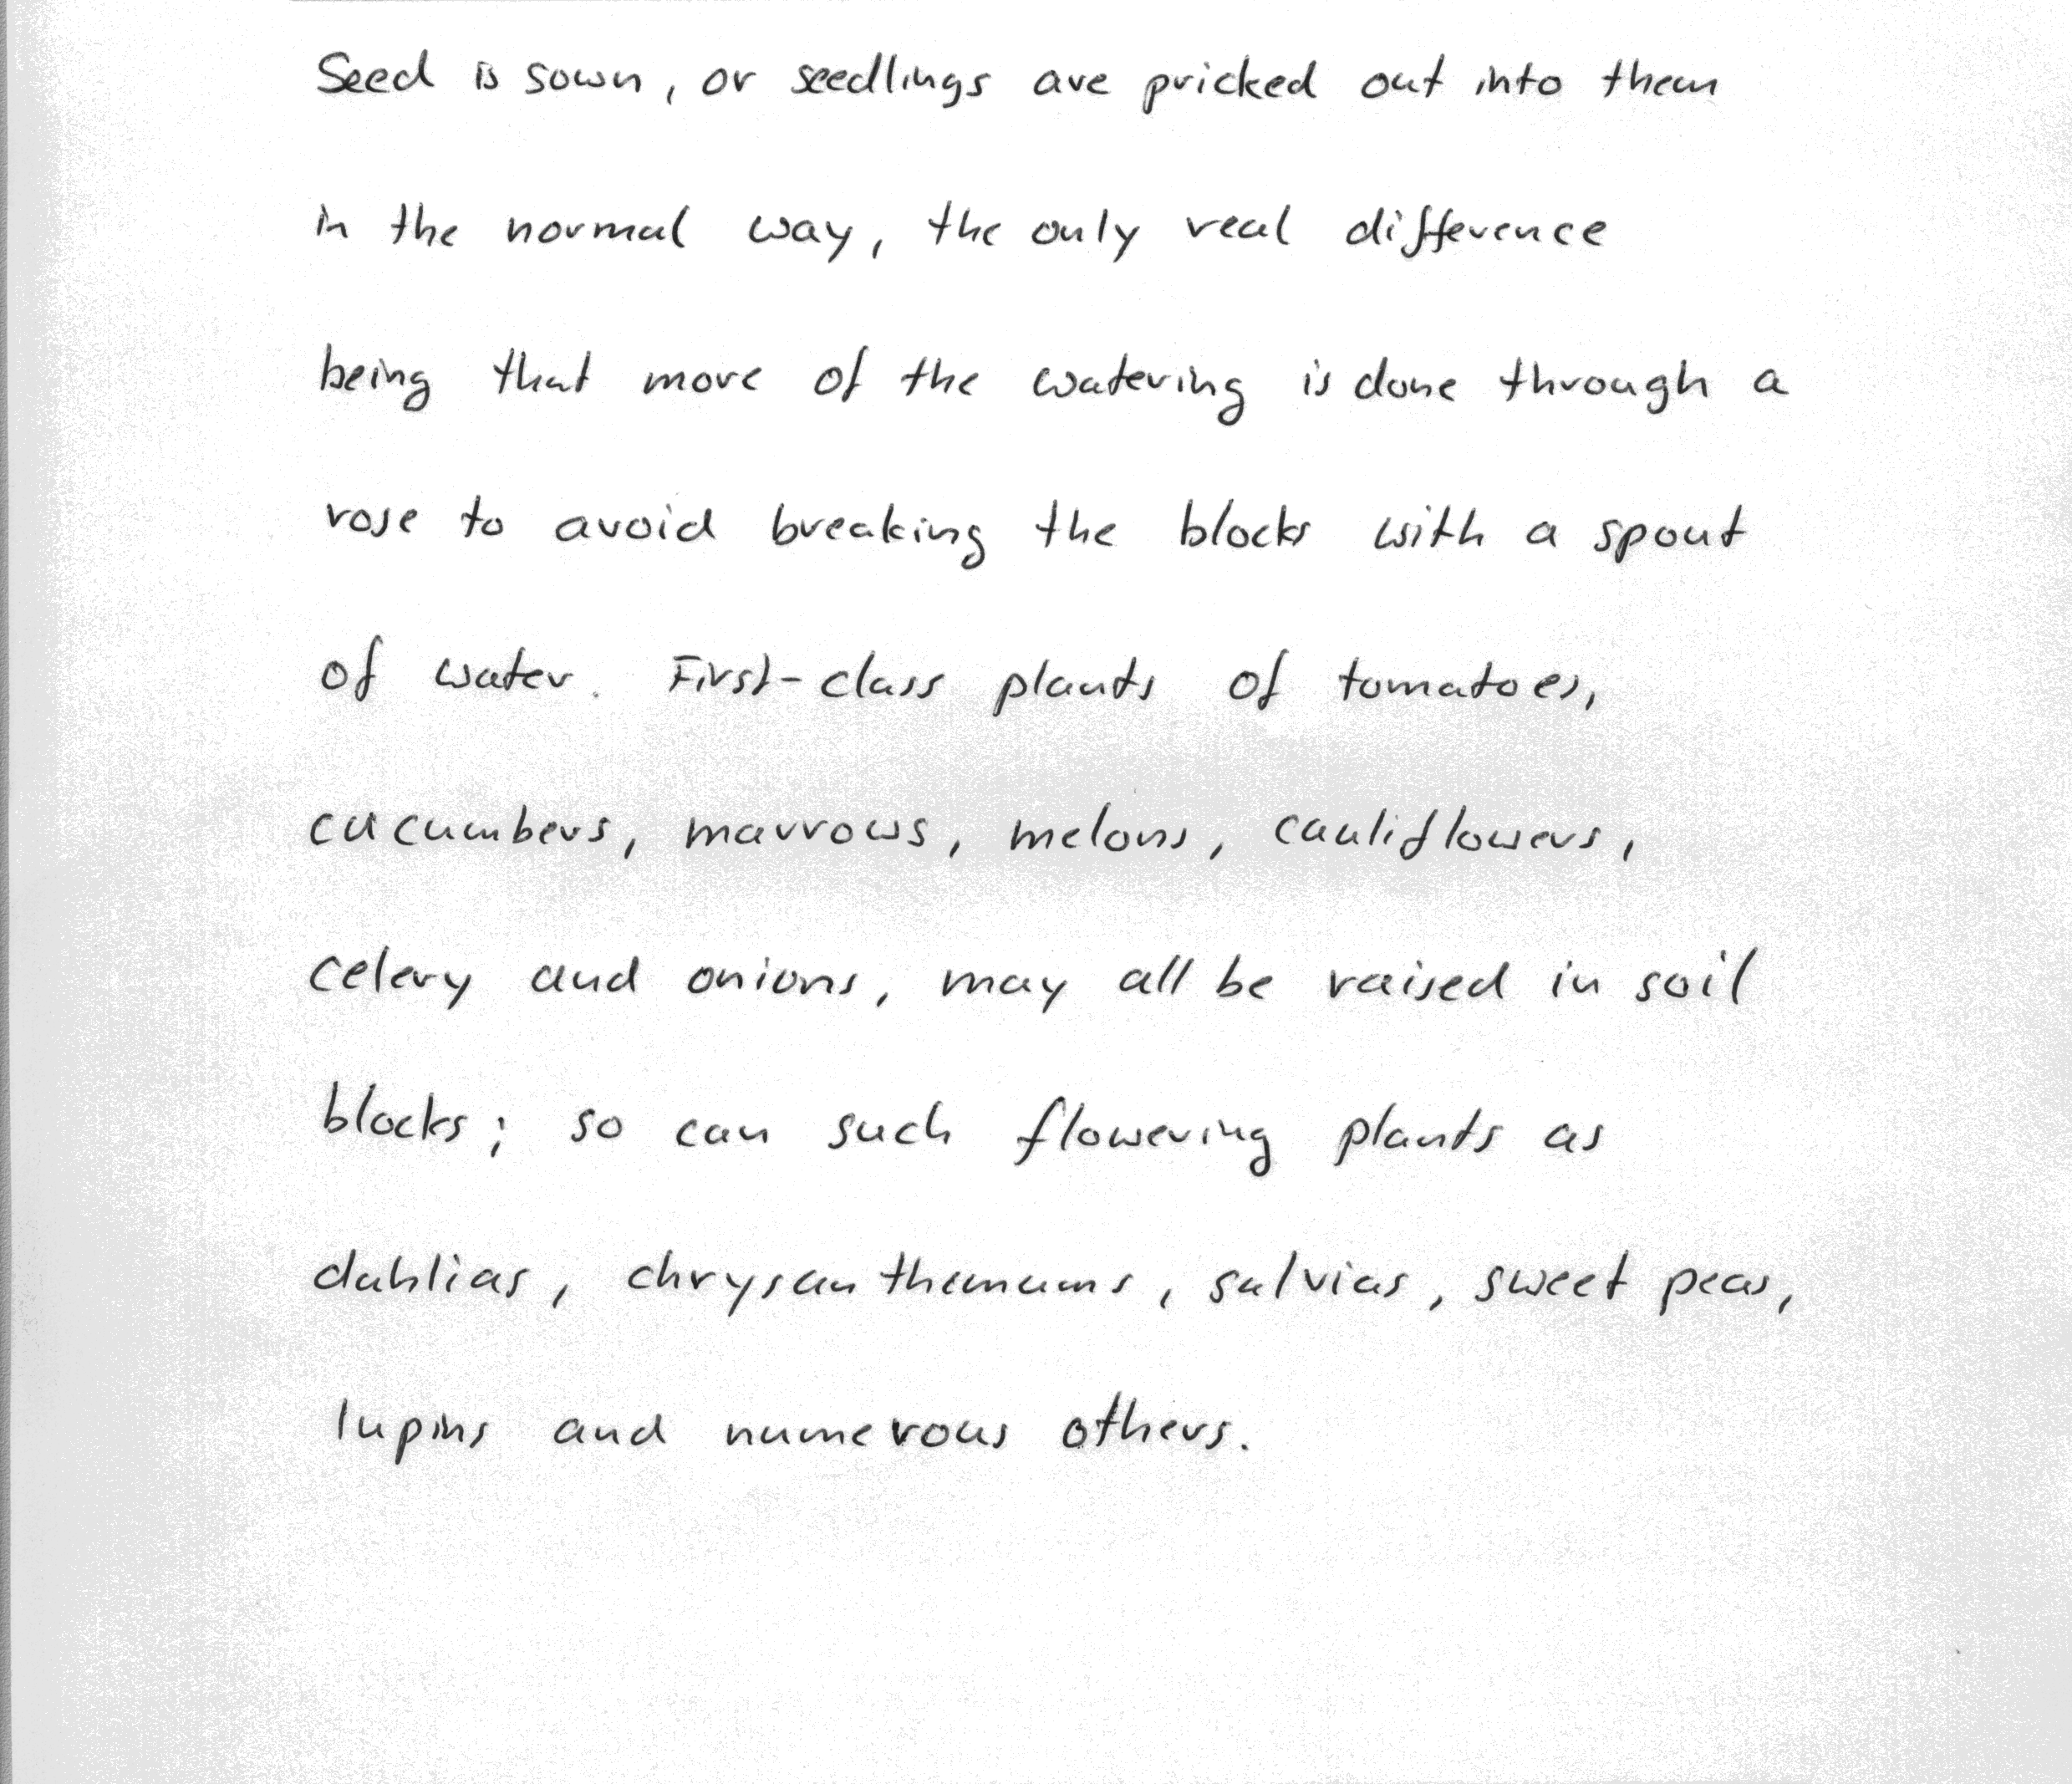 Seed is sown, or seedlings are pricked out into them
in the normal way, the only real difference
being that more of the watering is done through a
rose to avoid breaking the blocks with a spout
of water. First-class plants of tomatoes,
cucumbers, marrows, melons, cauliflowers,
celery and onions, may all be raised in soil
blocks; so can such flowering plants as
dahlias, chrysanthemums, salvias, sweet peas,
lupins and numerous others.